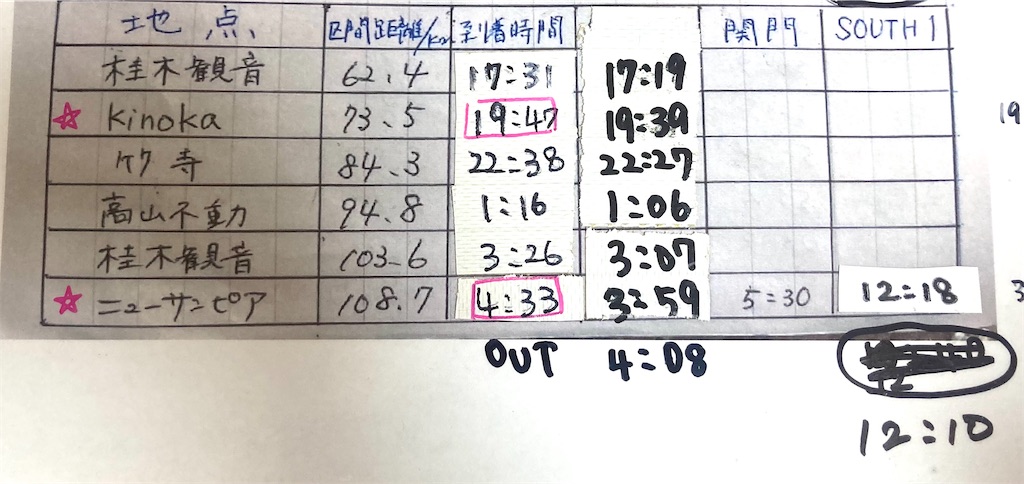 地点 区間距離/km 到着時間 関門 SOUTH1
桂木観音 62.4 17:31 17:19
☆ Kinoka 73.5 19:47 19:39
竹寺 84.3 22:38 22:27
高山不動 94.8 1:16 1:06
桂木観音 103.6 3:26 3:07
☆ ニューサンピア 108.7 4:33 3:59 5:30 12:18
OUT 4:08
12:10